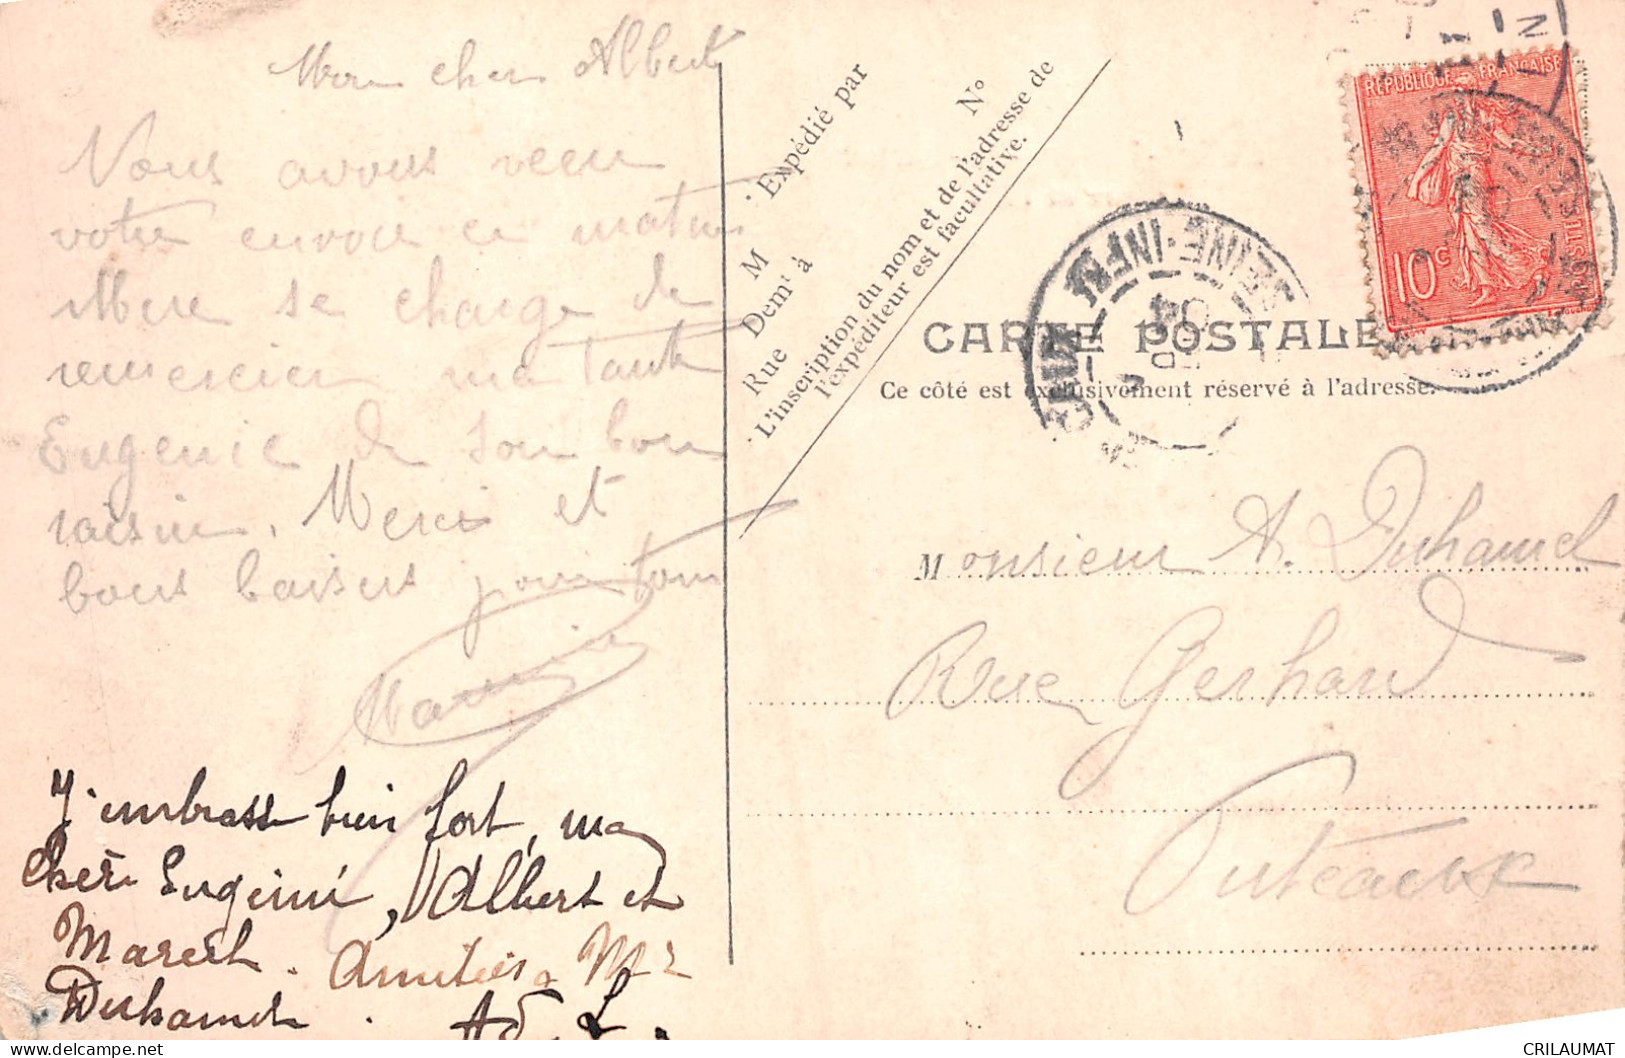 Mon cher Albert
Nous avons reçu
votre envoie ce matin
Mère se charge de
remercier ma Tante
Eugenie de son bon
raisin. Merci et
bons baisers pour tous
J'embrasse bien fort, ma
chère Eugénie, Albert et
Marcel. Amitiés à Mr
Duhamel.
Expédié par
M
Demt à
Rue
N°
L'inscription du nom et de l'adresse de
l'expéditeur est facultative.
REPUBLIQUE FRANÇAISE
10c
SEINE-INFRE
04
CARTE POSTALE
Ce côté est exclusivement réservé à l'adresse.
Monsieur A. Duhamel
Rue Gerhard
Puteaux
CRILAUMAT